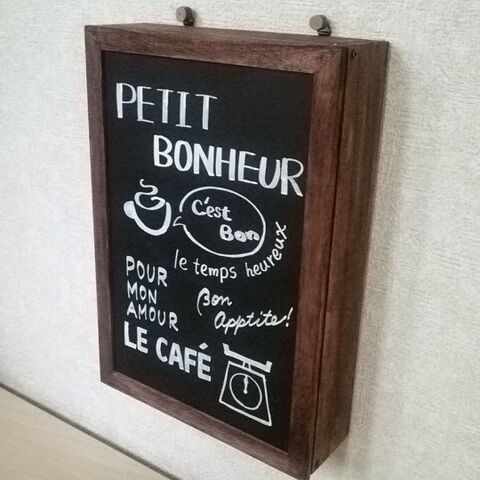 PETIT
BONHEUR
C'est
Bon
le temps heureux
POUR
MON
AMOUR
Bon
Apptite!
LE CAFÉ